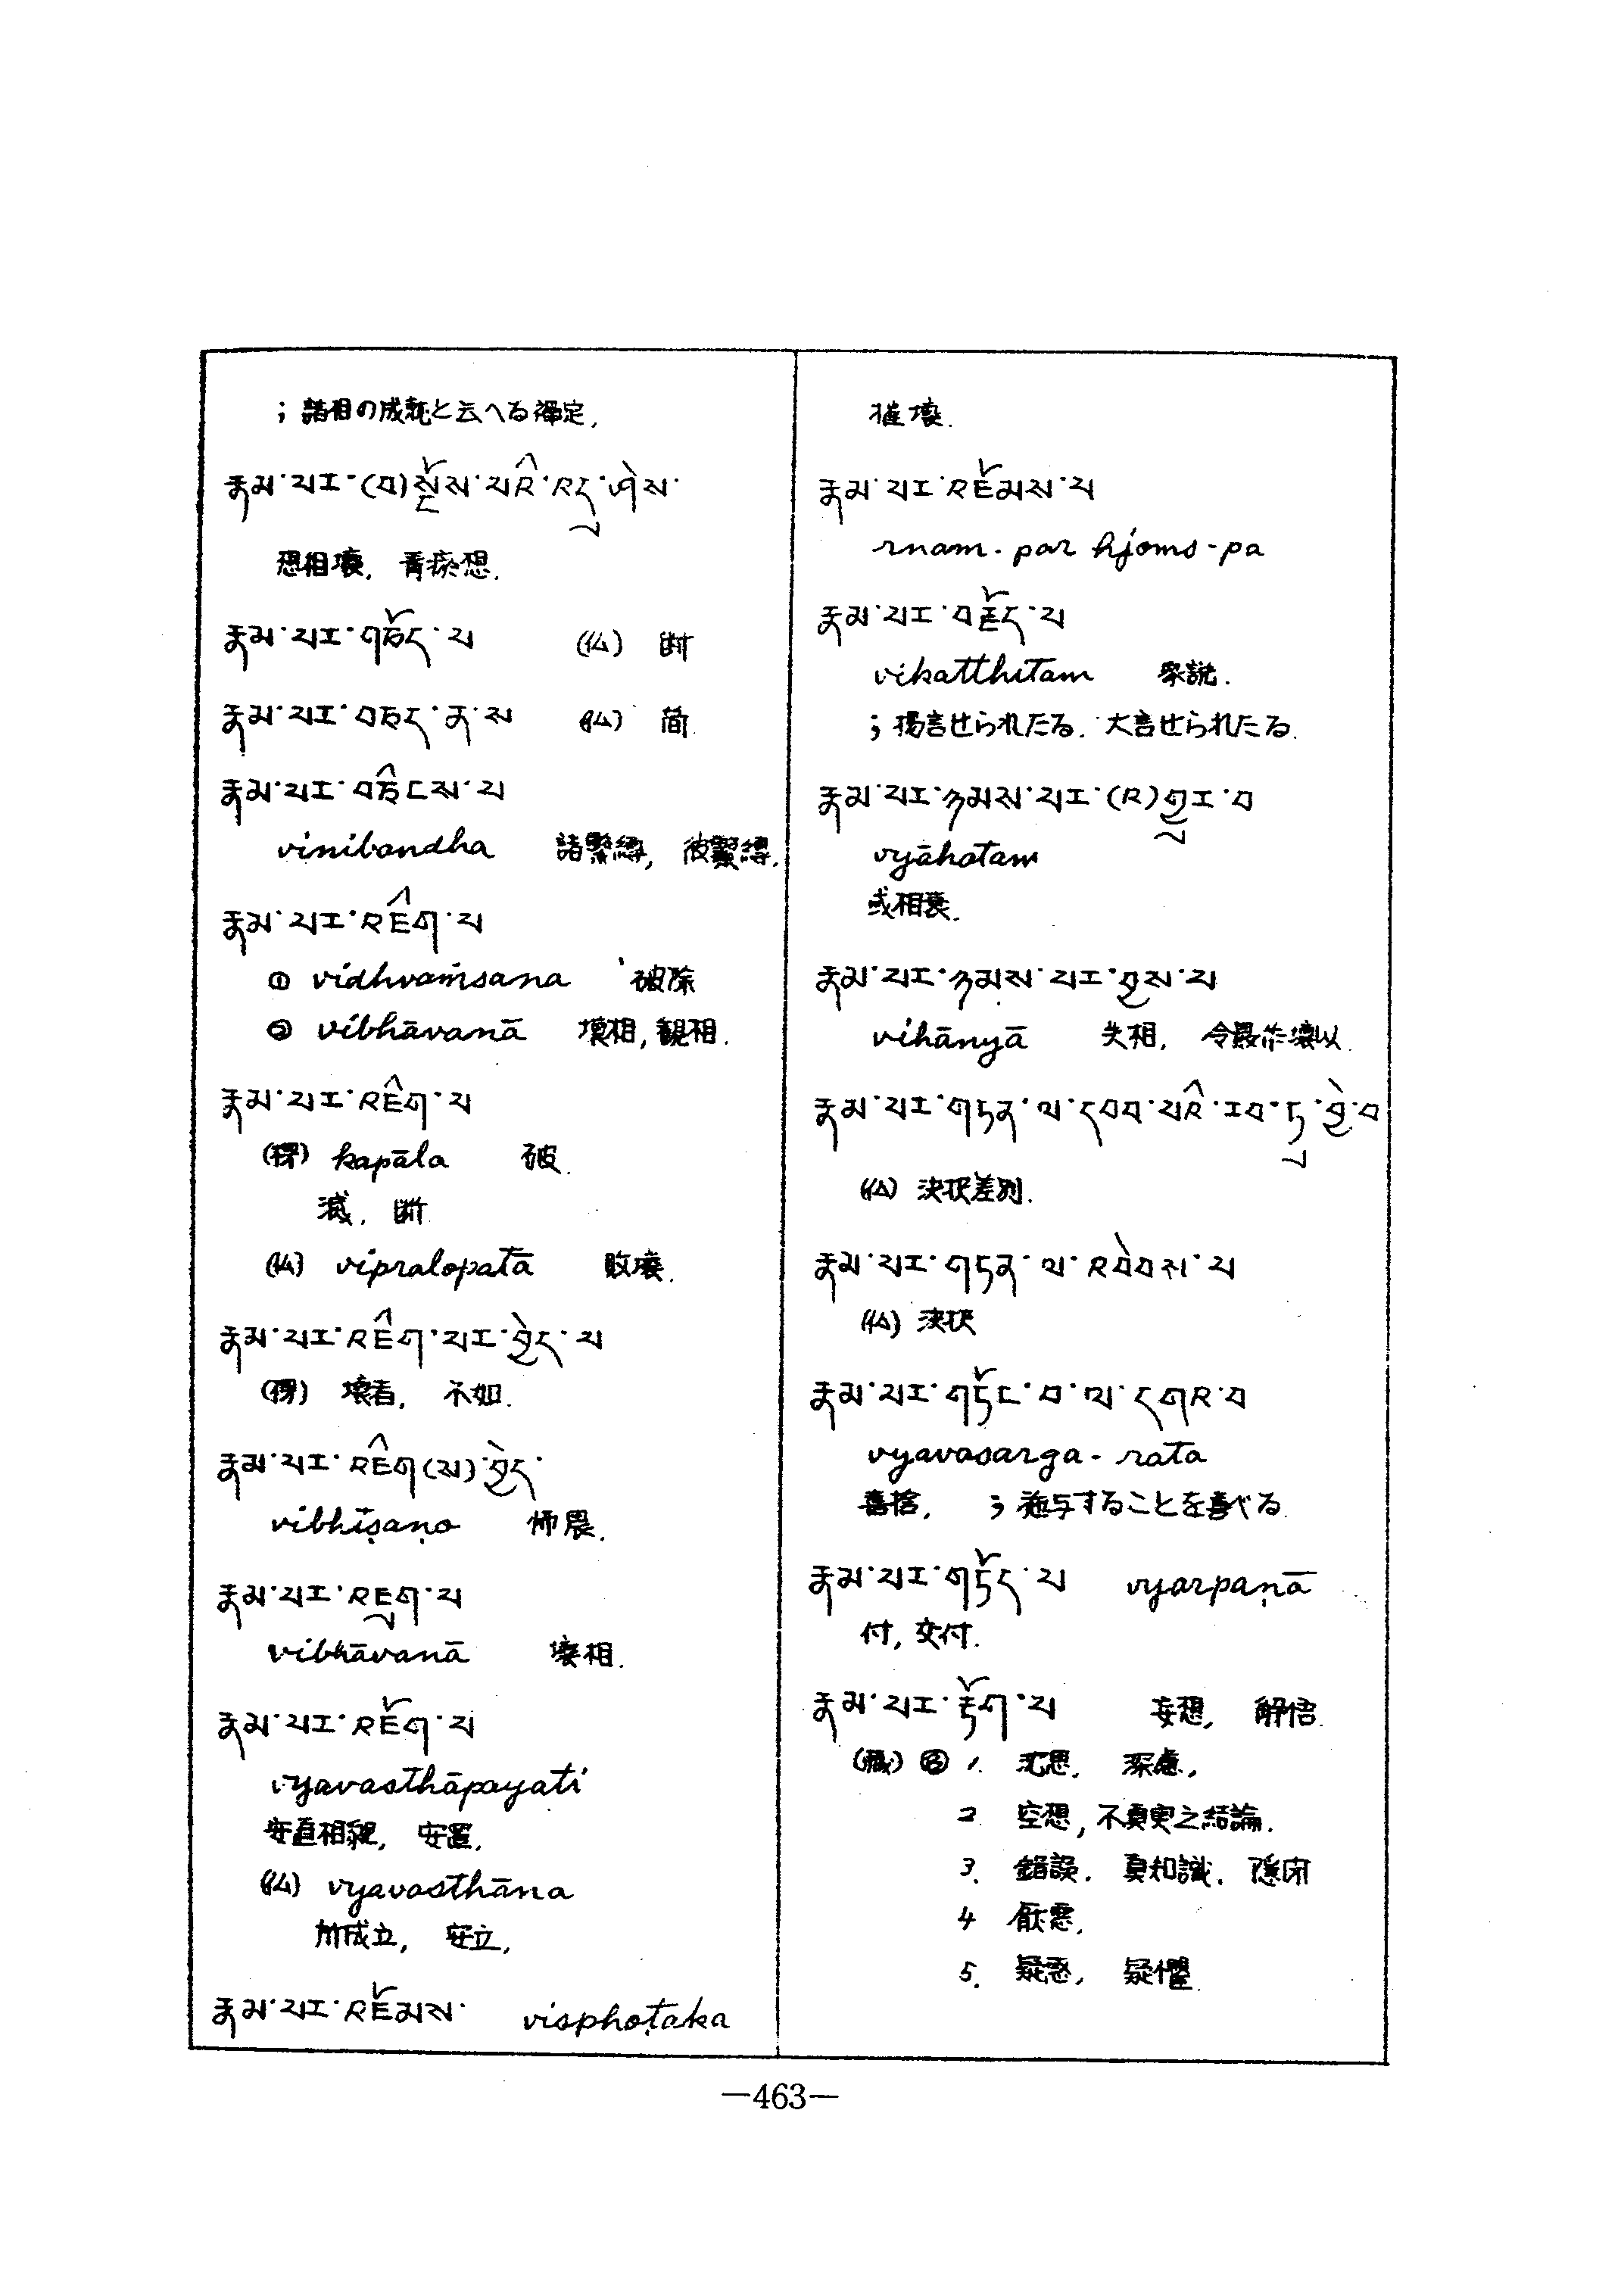 ; 諸相の成就と云へる禅定.
རྣམ་པར་(བ)སྔོས་པའི་འདུ་ཤེས་
想相壊, 青瘀想.
རྣམ་པར་གཅོད་པ (仏) 断
རྣམ་པར་བཅད་ན་ས (仏) 簡
རྣམ་པར་བཅིངས་པ
vinibandha 諸繋縛, 彼繋縛.
རྣམ་པར་འཇིག་པ
① vidhvaṁsana 破除
② vibhāvanā 壊相, 観相.
རྣམ་པར་འཇིག་པ
kapāla 破.
滅. 断
(仏) vipralopatā 敗壊.
རྣམ་པར་འཇིག་པར་བྱེད་པ
壊者, 不如.
རྣམ་པར་འཇིག(ས)་བྱེད་
vibhīṣaṇo 怖畏.
རྣམ་པར་འཇུག་པ
vibhāvanā 壊相.
རྣམ་པར་འཇོག་པ
vyavasthāpayati
安置相貌, 安置.
(仏) vyavasthāna
所成立, 安立,
རྣམ་པར་འཇོམས་ visphoṭaka
摧壊.
རྣམ་པར་འཇོམས་པ
rnam-par hjoms-pa
རྣམ་པར་བརྗོད་པ
vikatthitam 衆説.
; 揚言せられたる. 大言せられたる.
རྣམ་པར་ཉམས་པར་(འ)གྱུར་བ
vyāhatam
或相衰.
རྣམ་པར་ཉམས་པར་བྱས་པ
vihānyā 失相, 令最作壊以.
རྣམ་པར་གཏན་ལ་དབབ་པའི་རབ་ཏུ་བྱེ་བ
(仏) 決択差別.
རྣམ་པར་གཏན་ལ་འབེབས་པ
(仏) 決択
རྣམ་པར་གཏོང་བ་ལ་དགའ་བ
vyavasarga-rata
喜捨, ; 施与することを喜べる.
རྣམ་པར་གཏོད་པ vyarpaṇā
付, 交付.
རྣམ་པར་རྟོག་པ 妄想, 解悟.
(蔵) 1. 沈思, 深慮,
2 空想, 不真実之結論.
3. 錯誤. 真知識.
4 厭悪,
5. 疑惑, 疑懼.
—463—